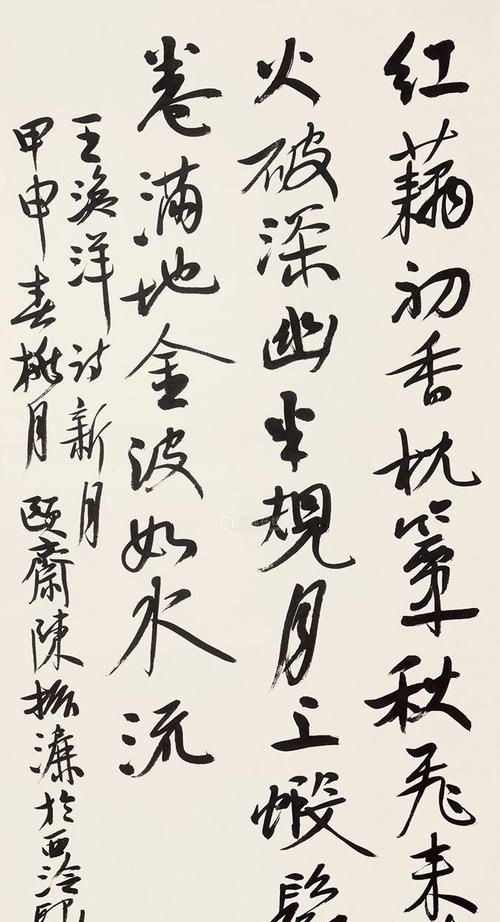 红藕初香枕簟秋飛来
火破深幽半規月上蝦鬚
卷滿地金波如水流
王漁洋诗新月
甲申春桃月頤齋陳振濂於西泠印